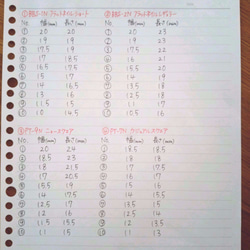 フラットネイルショート
No. 幅(mm) 長さ(mm)
① 20 20
② 19 19
③ 17.5 19
④ 17 18
⑤ 16.5 17.5
⑥ 15 17
⑦ 14 17
⑧ 13 15
⑨ 12 15
⑩ 11 14.5
No. 幅(mm) 長さ(mm)
① 20 23
② 19 23
③ 18 22
④ 17 21
⑤ 15.5 20
⑥ 16 21
⑦ 14 18
⑧ 13 18
⑨ 12 16
⑩ 10.5 16
ニュースクエア
No. 幅(mm) 長さ(mm)
① 20 24
② 18.5 23
③ 18 21
④ 17
⑤ 15.5 19
⑥ 14 17.5
⑦ 12.5 18
⑧ 12 16
⑨ 11.5 15.5
⑩ 11 15
カジュアルスクエア
No. 幅(mm) 長さ(mm)
① 18.5
② 18 18
③ 17
④ 16 17
⑤ 15 16
⑥ 15.5 17
⑦ 13.5 15
⑧ 12.5 14
⑨ 12 13.5
⑩ 11 13